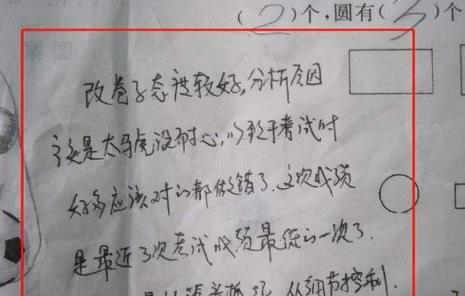 (2)个,圆有(3)个
改卷子态度较好,分析原因
主要是太马虎没耐心,以致于考试时
好多应该对的都做错了,这次成绩
是最近3次考试成绩最低的一次了.
从细节控制.